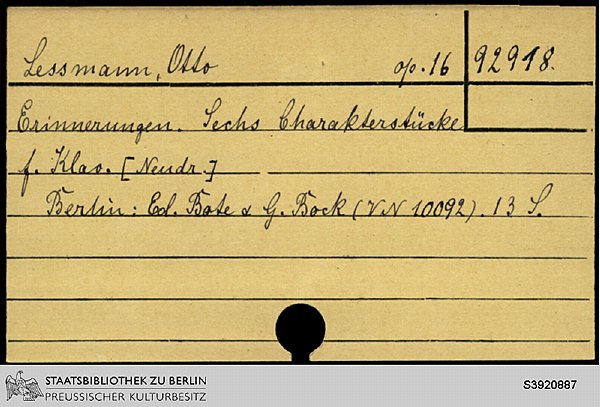 Lessmann, Otto op. 16 92918.
Erinnerungen. Sechs Charakterstücke
f. Klav. [Neudr.]
Berlin: Ed. Bote & G. Bock (VN 10092). 13 S.
STAATSBIBLIOTHEK ZU BERLIN
PREUSSISCHER KULTURBESITZ
S3920887